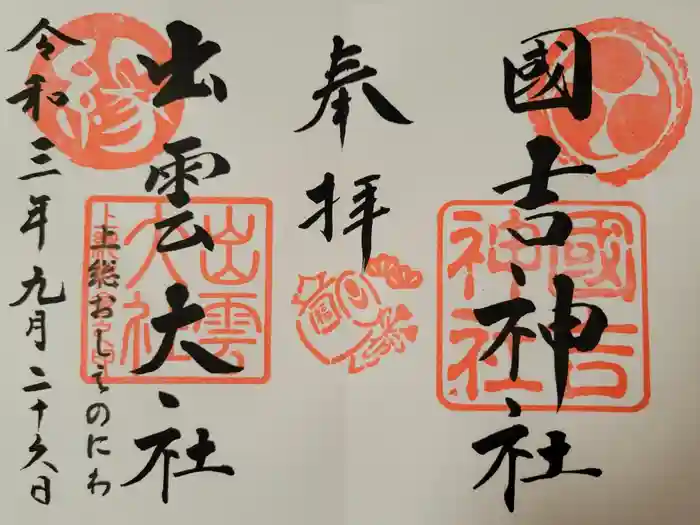 國吉神社
國吉神社
奉拝
出雲大社
出雲大社
縁
上総おしゑのにわ
令和三年九月二十六日